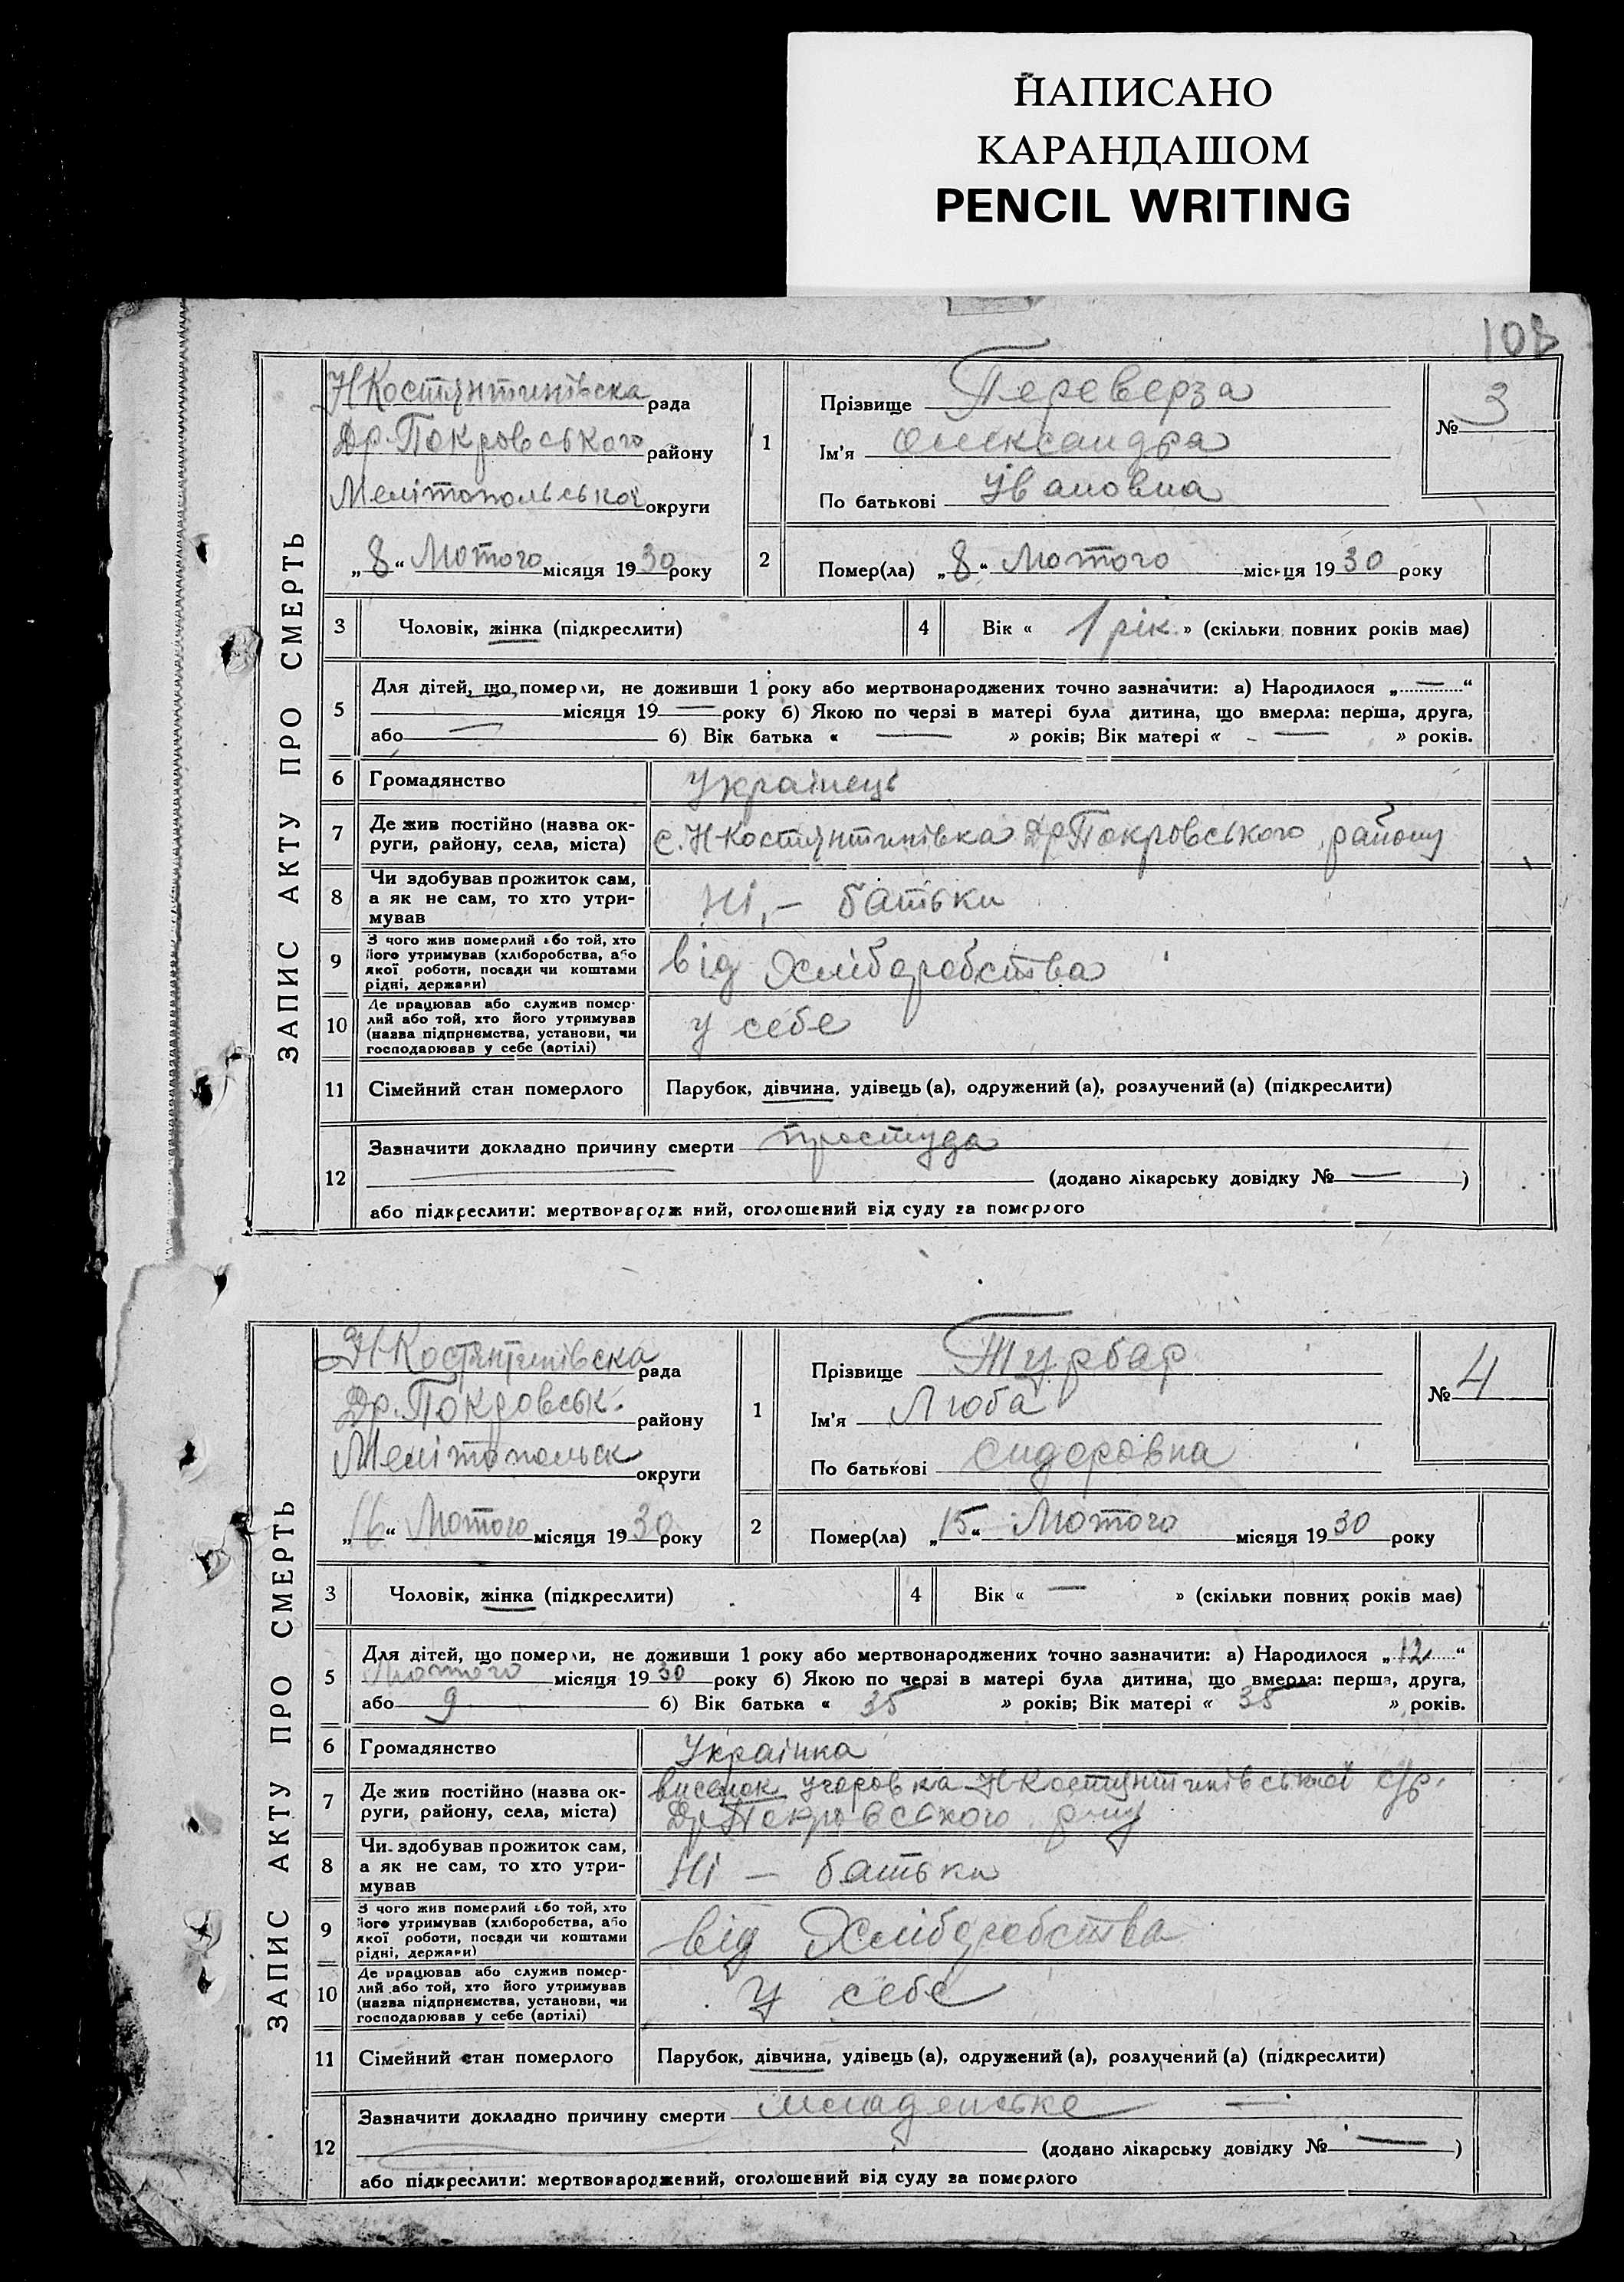 НАПИСАНО
КАРАНДАШОМ
PENCIL WRITING
108
ЗАПИС АКТУ ПРО СМЕРТЬ
Н Костянтинівска рада
Др. Покровського району
Мелітопольської округи
„8“ Лютого місяця 1930 року
1
Прізвище Переверза
Ім'я Олександра
По батькові Івановна
№ 3
2 Помер(ла) „8“ Лютого місяця 1930 року
3 Чоловік, жінка (підкреслити)
4 Вік « 1 рік » (скільки повних років має)
5 Для дітей, що померли, не доживши 1 року або мертвонароджених точно зазначити: а) Народилося „—“
— місяця 19 — року б) Якою по черзі в матері була дитина, що вмерла: перша, друга,
або — б) Вік батька « — » років; Вік матері « — » років.
6 Громадянство Українець
7 Де жив постійно (назва ок-
руги, району, села, міста) с. Н Костянтинівка Др Покровського району
8 Чи здобував прожиток сам,
а як не сам, то хто утри-
мував Ні, — батьки
9 З чого жив померлий або той, хто
його утримував (хліборобства, або
якої роботи, посади чи коштами
рідні, держави) від Хліборобства
10 Де працював або служив помер-
лий або той, хто його утримував
(назва підприємства, установи, чи
господарював у себе (артілі) у себе
11 Сімейний стан померлого Парубок, дівчина, удівець (а), одружений (а), розлучений (а) (підкреслити)
12 Зазначити докладно причину смерти простуда
(додано лікарську довідку № — )
або підкреслити: мертвонародж ний, оголошений від суду за померлого
ЗАПИС АКТУ ПРО СМЕРТЬ
Н Костянтинівска рада
Др. Покровськ. району
Мелітопольск округи
„16“ Лютого місяця 1930 року
1
Прізвище Турбар
Ім'я Люба
По батькові Сидоровна
№ 4
2 Помер(ла) „15“ Лютого місяця 1930 року
3 Чоловік, жінка (підкреслити)
4 Вік « — » (скільки повних років має)
5 Для дітей, що померли, не доживши 1 року або мертвонароджених точно зазначити: а) Народилося „12“
Лютого місяця 1930 року б) Якою по черзі в матері була дитина, що вмерла: перша, друга,
або 9 б) Вік батька « 35 » років; Вік матері « 35 » років.
6 Громадянство Українка
7 Де жив постійно (назва ок- виселок Н Костянтинівської с/р.
руги, району, села, міста) Др Покровського р-ну
8 Чи здобував прожиток сам,
а як не сам, то хто утри-
мував Ні — батьки
9 З чого жив померлий або той, хто
його утримував (хліборобства, або
якої роботи, посади чи коштами
рідні, держави) від Хліборобства
10 Де працював або служив помер-
лий або той, хто його утримував
(назва підприємства, установи, чи
господарював у себе (артілі) У себе
11 Сімейний стан померлого Парубок, дівчина, удівець (а), одружений (а), розлучений (а) (підкреслити)
12 Зазначити докладно причину смерти младенське —
(додано лікарську довідку № — )
або підкреслити: мертвонароджений, оголошений від суду за померлого